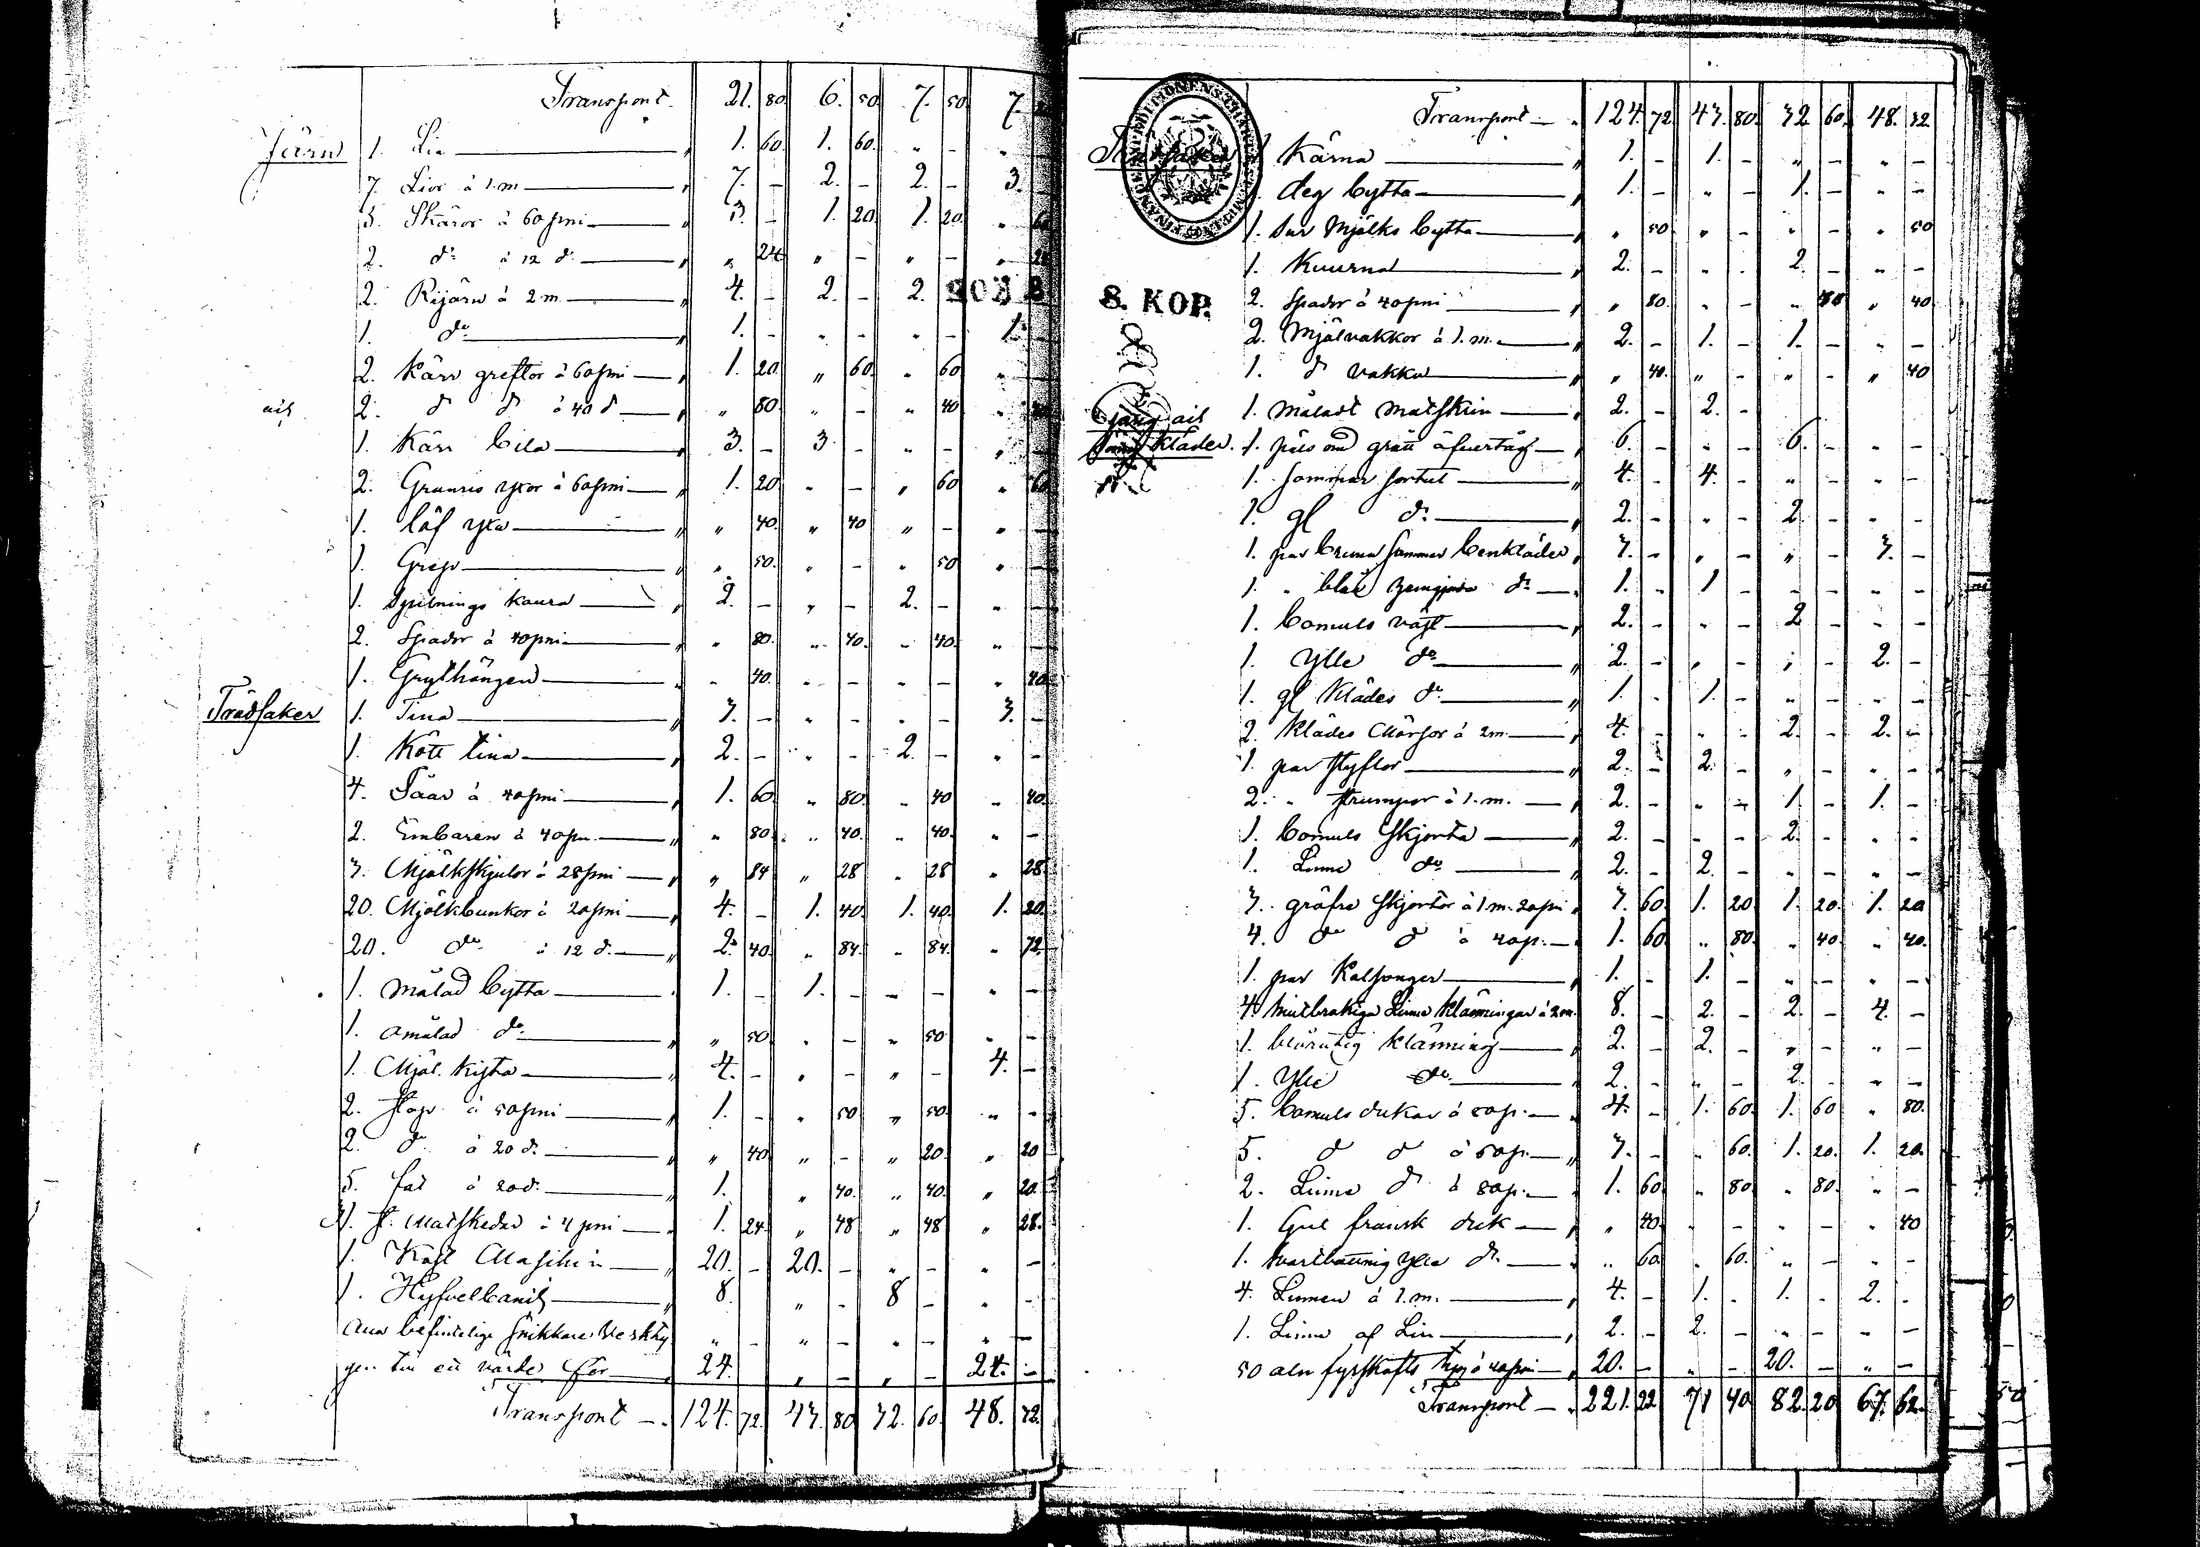 Transport. 21. 80. 6. 50. 7. 50. 7.
Järn 1. Lia „ 1. 60. 1. 60. „ - „ -
7. Lior à 1.m „ 7. - 2. - 2. - 3. -
5. Skäror à 60 pni „ 3. - 1. 20. 1. 20. „ 60
2. do à 12 do „ „ 24 „ - „ - „ 24
2. Rijärn à 2 m. „ 4. - 2. - 2.
1. do „ 1. - „ - „ - 1. -
2. Kärr greftor à 60 pni „ 1. 20. „ 60. „ 60 „ -
2. d d à 40 d „ „ 80. „ - „ 40 „ 40
1. Kärr bila „ 3. - 3. - „ - „ -
2. Granris yxor à 60 pni „ 1. 20 „ - „ 60 „ 60
1. Löf yxa „ „ 40. „ 40 „ - „ -
1. Grep „ „ 50. „ - „ 50 „ -
1. Spilnings kanna 2. - „ - 2. - „ -
2. Spador à 40 pni „ 80. „ 40. „ 40. „ -
1. Grythängen „ „ 40. „ - „ - „ 40
Trädsaker 1. Tina „ 3. - „ - „ - 3. -
1. Kött tina „ 2. - „ - 2. - „ -
4. Såar à 40 pni „ 1. 60. „ 80. „ 40 „ 40.
2. Embaren à 40 pn. „ „ 80. „ 40. „ 40. „ -
3. Mjölkskjulor à 28 pni „ „ 84 „ 28 „ 28 „ 28
20. Mjölkbunkor à 20 pni „ 4. - 1. 40. 1. 40. 1. 20.
20. do à 12 d. „ 2. 40. „ 84. „ 84. „ 72.
1. Målad bytta 1. - 1. - „ - „ -
1. omålad do „ „ 50 „ - „ 50 „ -
1. Mjöl. kista „ 4. - „ - „ - 4. -
2. Stop à 50 pni „ 1. - „ 50 „ 50. „ -
2. do à 20 d. „ „ 40 „ - „ 20. „ 20
5. fat à 20 d. „ 1. „ 40. „ 40. „ 20.
31. st. Matskedar à 4 pni „ 1. 24. „ 48 „ 48 „ 28.
1. Kast Maschin „ 20. - 20. - „ - „ -
1. Hyfvelbänk „ 8. „ - 8 - „ -
Alla befintelige Snikkare Verkty „ - „ - „ - „ -
gen till ett värde för 24. „ - „ - 24. -
Transport - 124. 72. 43. 80 32. 60. 48. 32.
Transport - 124. 72 43. 80. 32. 60. 48. 32
Trädsaker 1. Kärna „ 1. - 1. - „ - „ -
1. deg bytta „ 1. - „ - 1. - „ -
1. Sur Mjölks bytta „ „ 50 „ - „ - „ 50
8. KOP.
1. Kuurna „ 2. - „ - 2. - „ -
2. Spador à 40 pni „ „ 80. „ - „ 40 „ 40
2. Mjölvakkor à 1.m. „ 2. - 1. - 1. - „ -
1. d vakka „ „ 40. „ - „ - „ 40
1. Måladt matskrin „ 2. - 2. -
Gång kläder. 1. päls med grått öfvertåg 6. - „ - 6. - „ -
1. Sommar sortut „ 4. - 4. - „ - „ -
1. gl do „ 2. - „ - 2. - „ -
1. par bruna sommar benkläder „ 3. - „ - „ - 3. -
1. „ blåa do 1. - 1 - „ - „ -
1. bomuls väst „ 2. - „ - 2 - „ -
1. Ylle do „ 2. - „ - „ - 2. -
1. gl Klädes do „ 1. - 1. - „ - „ -
2. klädes Mössor à 2m. „ 4. - „ - 2. - 2. -
1. par styflor „ 2. - 2. - „ - „ -
2. „ strumpor à 1.m. „ 2. - „ - 1. - 1. -
1. bomuls skjorta „ 2. - „ - 2. - „ -
1. Linne do „ 2. - 2. - „ - „ -
3. gröfre skjortor à 1 m. 20 pni „ 3. 60. 1. 20 1. 20. 1. 20
4. do d à 40 p. 1. 60. „ 80. „ 40 „ 40.
1. par Kalsonger „ 1. - 1. - „ - „ -
4. Linne Klänningar à 2 m. 8. - 2. - 2. - 4. -
1. blårutig klänning „ 2. - 2. - „ - „ -
1. Ylle do „ 2. - „ - 2. - „ -
5. bomuls dukar à 80 p. „ 4. - 1. 60. 1. 60 „ 80.
5. d d à 60 p. „ 3. - „ 60. 1. 20. 1. 20.
2. Linne d à 80 p. „ 1. 60. „ 80 „ 80. „ -
1. Gul fransk duk „ „ 40. „ - „ - „ 40
1. Svartbottnig Ylle do „ „ 60. „ 60. „ - „ -
4. Linnen à 1.m. „ 4. - 1. - 1. - 2. -
1. Linne af Lin „ 2. - 2. - „ - „ -
50 aln fyrskafts tyg à 40 pni „ 20. - „ - 20. - „ -
Transport - 221. 22 71 40 82. 20 67. 62.